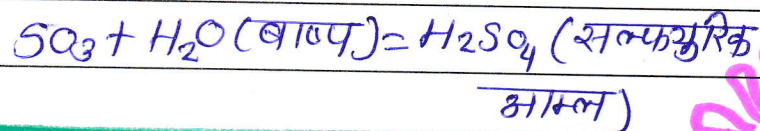 SO₃ + H₂O (बाष्प) = H₂SO₄ (सल्फ्युरिक
आम्ल)